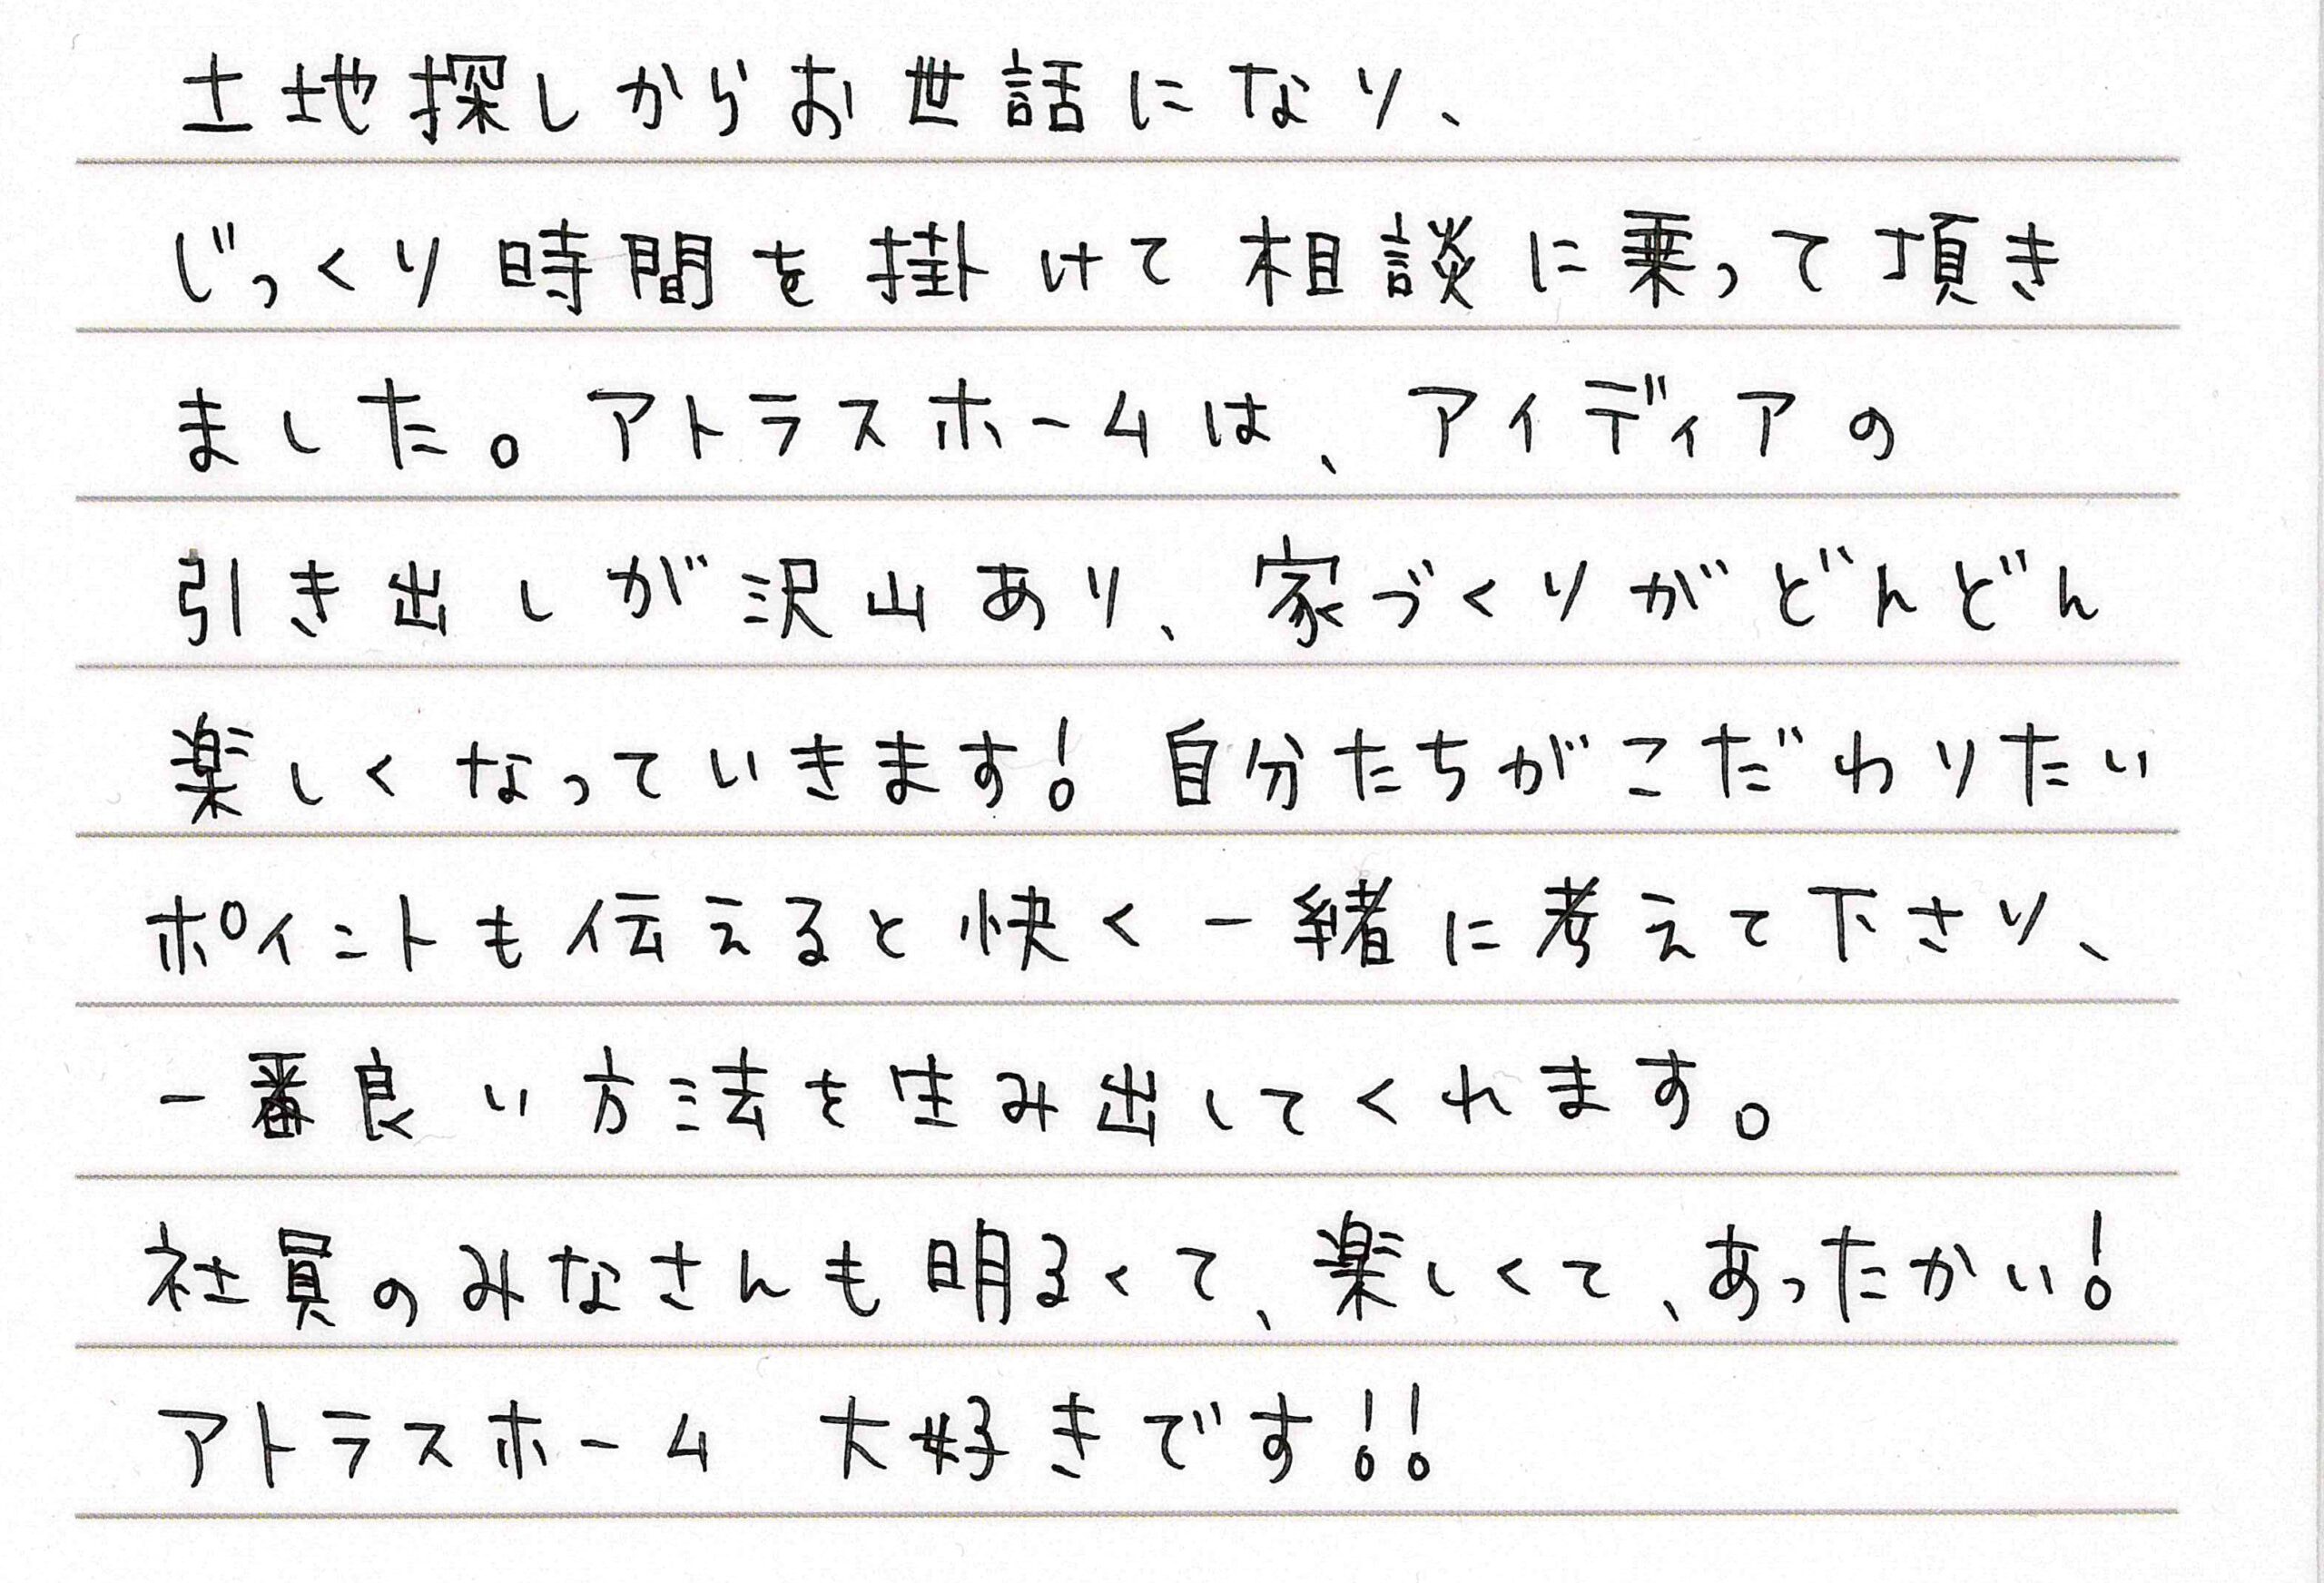 土地探しからお世話になり、
じっくり時間を掛けて相談に乗って頂き
ました。アトラスホームは、アイディアの
引き出しが沢山あり、家づくりがどんどん
楽しくなっていきます! 自分たちがこだわりたい
ポイントも伝えると快く一緒に考えて下さり、
一番良い方法を生み出してくれます。
社員のみなさんも明るくて、楽しくて、あったかい!
アトラスホーム 大好きです!!